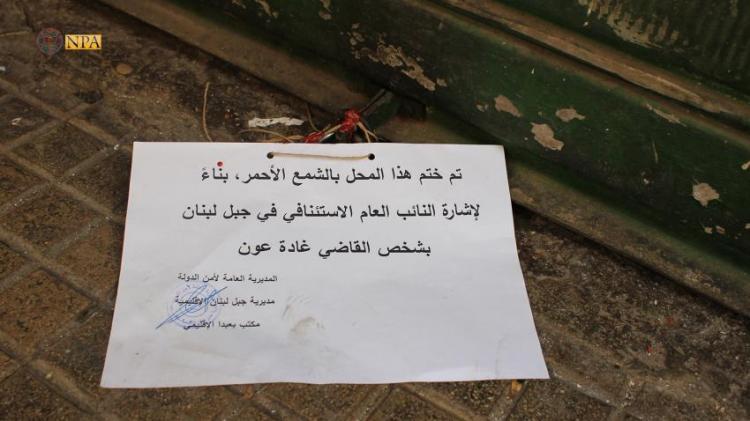 NPA
تم ختم هذا المحل بالشمع الأحمر، بناءً
لإشارة النائب العام الاستئنافي في جبل لبنان
بشخص القاضي غادة عون
المديرية العامة لأمن الدولة
مديرية جبل لبنان الإقليمية
مكتب بعبدا الإقليمي